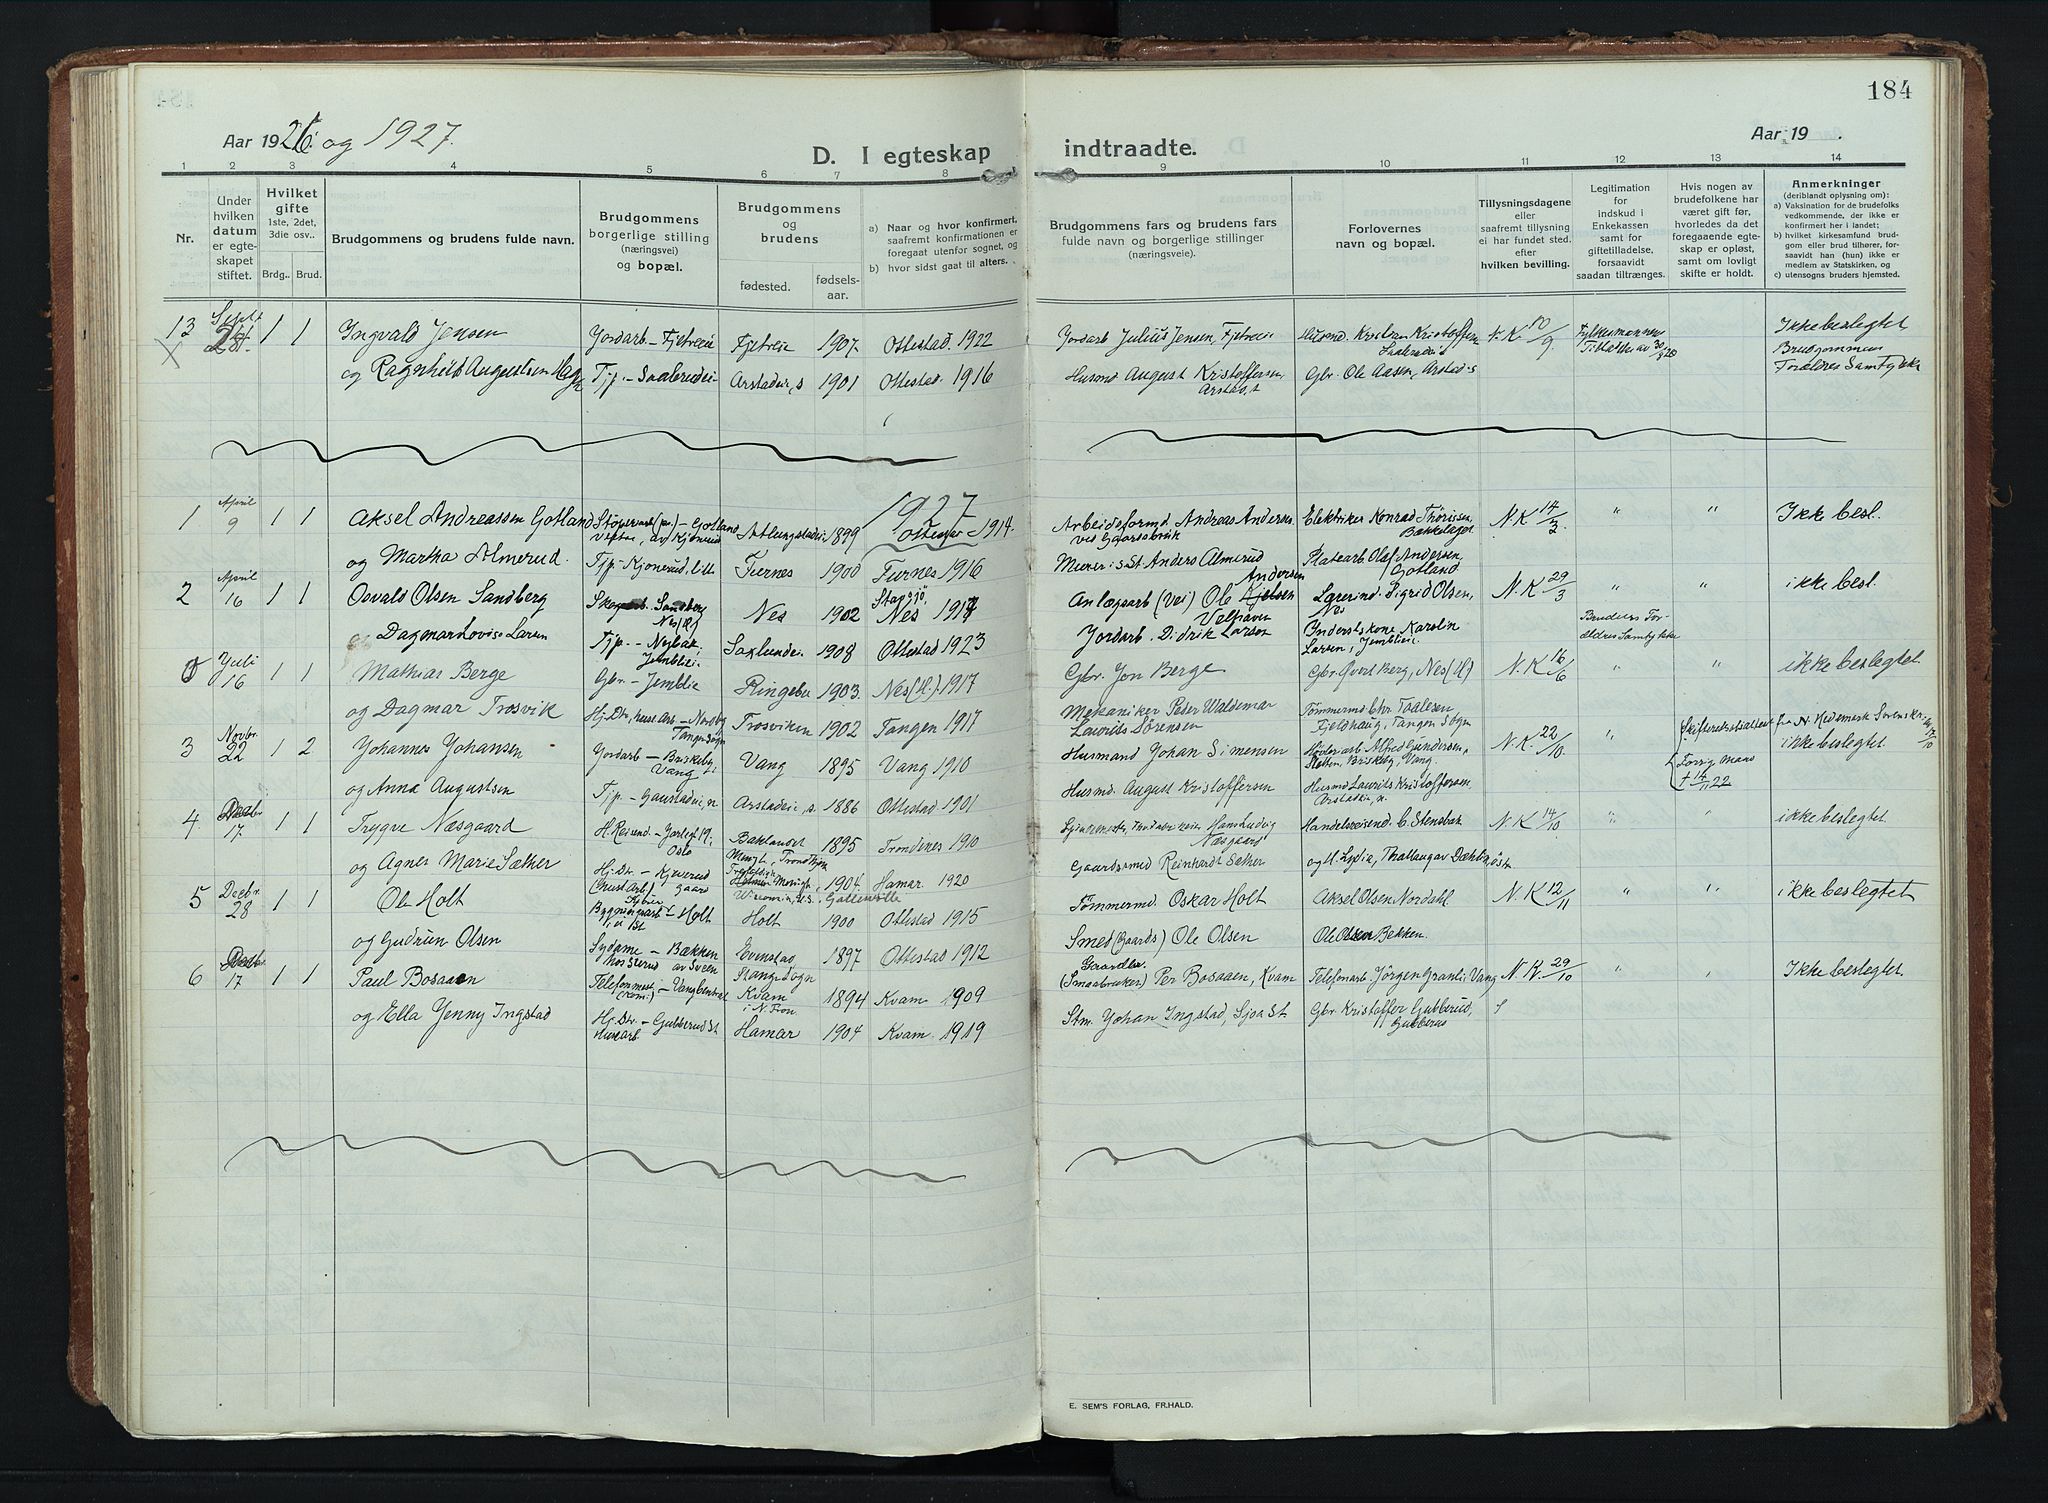 184
Aar 1926 og 1927.
Aar 19 .
D. I egteskap indtraadte.
1 2 3 4 5 6 7 8 9 10 11 12 13 14
Nr.
Under hvilken datum er egteskapet stiftet.
Hvilket gifte 1ste, 2det, 3die osv..
Brdg.. Brud.
Brudgommens og brudens fulde navn.
Brudgommens borgerlige stilling (næringsvei) og bopæl.
Brudgommens og brudens
fødested. fødselsaar.
a) Naar og hvor konfirmert, saafremt konfirmationen er foregaat utenfor sognet, og
b) hvor sidst gaat til alters.
Brudgommens fars og brudens fars fulde navn og borgerlige stillinger (næringsveie).
Forlovernes navn og bopæl.
Tillysningsdagene eller saafremt tillysning ei har fundet sted. efter hvilken bevilling.
Legitimation for indskud i Enkekassen samt for giftetilladelse, forsaavidt saadan tiltrænges.
Hvis nogen av brudefolkene har været gift før, hvorledes da det foregaaende egteskap er opløst, samt om lovligt skifte er holdt.
Anmerkninger (deriblandt oplysning om):
a) Vaksination for de brudefolks vedkommende, der ikke er konfirmert her i landet;
b) hvilket kirkesamfund brudgom eller brud tilhører, forsaavidt han (hun) ikke er medlem av Statskirken, og
c) utensogns bruders hjemsted.
13 Septr 1 1 Ingvald Jensen Jordarb – Fjetreie Fjetreie 1907. Ottestad. 1922 Jordarb Julius Jensen, Fjetreie Husmd. Kristian Kristoffersen N. K 10/9 Fylkesmannens Ikke beslegtet
Brudgommens
og Ragnhild Augustsen Tjp. – Aarstadeie, s 1901 Ottestad. 1916 Husmd August Kristoffersen, Gbr. Ole Aasen, Arstad s Forældres Samtykke
1927
1 April 9 1 1 Aksel Andreassen Gotland – Gotland 1899 1914. Arbeidsformd Andreas Andersen Elektriker Konrad Thorissen, N. K 14/3 " " Ikke besl.
ved Gaardsbruk
og Martha Almerud. Tjp. – Kjonerud, lille Furnes 1900 Furnes 1916 Murer Anders Almerud Platearb Olaf Andersen, Gotland
2 April 16 1 1 Osvald Olsen Sandberg Sandberg Nes (H) Nes 1902 Nes 1917 Anlægsarb (Vei) Ole Andersen Lærerind. Sigrid Olsen, Nes N. K 29/3 " " ikke besl.
Dagmar Lovise Larsen Tjp. – Nybak, Jemblie. 1908 Ottestad 1923 Jordarb. Didrik Larsen Karolin Larsen, Jemblie. Brudens Forældres Samtykke
Juli 16 1 1 Mathias Berge Gbr – Jemblie Ringebu 1903. Nes (H). 1917 Gbr. Jon Berge Gbr. Øvert Berg, Nes (H) N. K 16/6 " " ikke beslegtet
og Dagmar Trosvik Hj. Dtr, huse Arb – Trosviken 1902 Tangen 1917 Mekaniker Peder Waldemar Laurits Sørensen Tømmermd Chr. Taalesen Fjeldhaug, Tangen Sogn
3 Novbr. 22 1 2 Johannes Johansen Jordarb – Briskeby, Vang Vang 1895 Vang 1910 Husmand Johan Simensen Alfred Gundersen, Briskeby, Vang. N. K. 22/10 " Skifteretsattest fra N. Hedemark Sorenskr. ikke beslegtet
Forrig Mand + 14/11 22
og Anna Augustsen Tjp. – Gaustadeie, n Arstadeie, s. 1886 Ottestad 1901 Husmd. August Kristoffersen Husmd Laurits Kristoffersen, Arstadeie n.
4 Decbr 17 1 1 Trygve Næsgaard H. Reisend – Oslo Baklandet 1895 Trondenes 1910 Hans Ludvig Næsgaard Handelsreisend. C. Stensbak N. K 14/10. " " ikke beslegtet
og Agnes Marie Sæther Hj. Dtr. – Kjøverud (husl Arb) gaard 1904. Hamar. 1920 Gaardsmd Reinhardt Sæther og
5 Decbr 28 1 1 Ole Holt Holt Holt 1900 Ottestad 1915 Tømmermd. Oskar Holt Aksel Olsen Nordahl N. K 12/11 " " ikke beslegtet
og Gudrun Olsen Sydame – Bækken Evenstad, Stange Sogn 1897 Ottestad 1912 Smed (Gaards) Ole Olsen Ole Olsen Bekken.
6 Decbr 17 1 1 Paul Bosaaen Telefonmest – Kvam i N. Fron 1894 Kvam 1909 Gaardbr. (Smaabruker) Per Bosaaen, Kvam Telefonarb. Jörgen Granli, Vang N. K. 29/10 " " Ikke beslegtet
og Ella Jenny Ingstad Hj. Dtr. – Gubberud St Husarb Hamar 1904 Kvam 1919 Stm. Johan Ingstad, Sjoa St Gbr Kristoffer Gubberud, Gubberud
E. SEM'S FORLAG, FR.HALD.